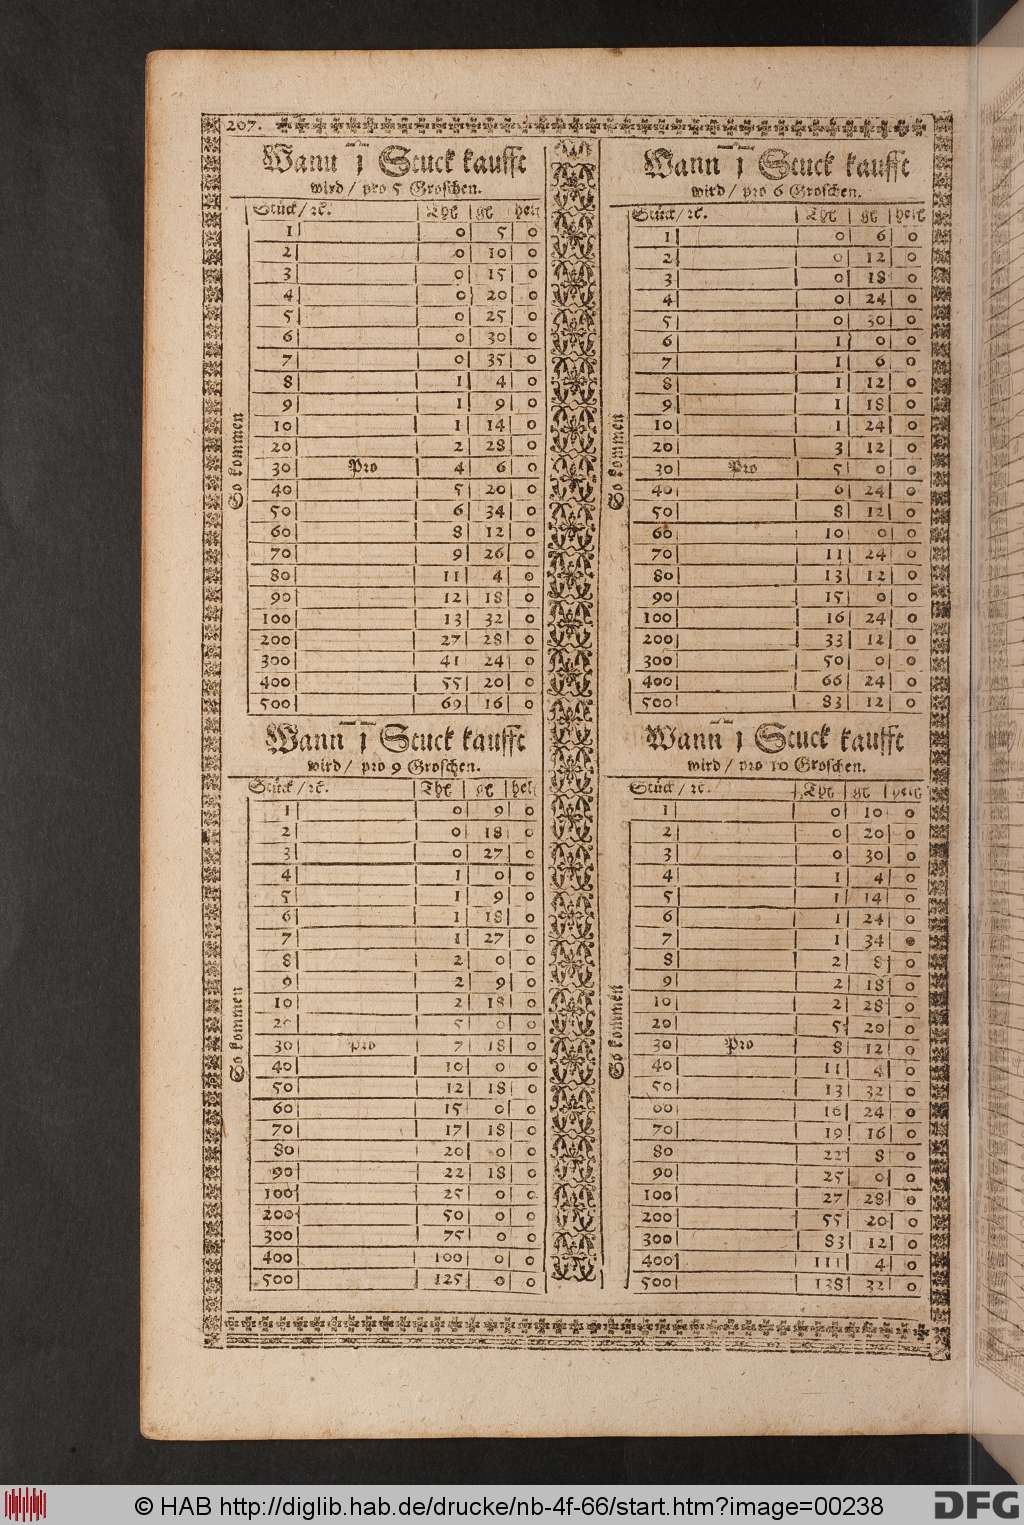 207.
Wann 1 Stuck kaufft
wird / pro 5 Groschen.
Stück / ꝛc. Thl gl hell
1 0 5 0
2 0 10 0
3 0 15 0
4 0 20 0
5 0 25 0
6 0 30 0
7 0 35 0
8 1 4 0
9 1 9 0
10 1 14 0
20 2 28 0
So kommen
30 Pro 4 6 0
40 5 20 0
50 6 34 0
60 8 12 0
70 9 26 0
80 11 4 0
90 12 18 0
100 13 32 0
200 27 28 0
300 41 24 0
400 55 20 0
500 69 16 0
Wann 1 Stuck kaufft
wird / pro 6 Groschen.
Stück / ꝛc. Thl gl hell
1 0 6 0
2 0 12 0
3 0 18 0
4 0 24 0
5 0 30 0
6 1 0 0
7 1 6 0
8 1 12 0
9 1 18 0
10 1 24 0
20 3 12 0
So kommen
30 Pro 5 0 0
40 6 24 0
50 8 12 0
60 10 0 0
70 11 24 0
80 13 12 0
90 15 0 0
100 16 24 0
200 33 12 0
300 50 0 0
400 66 24 0
500 83 12 0
Wann 1 Stuck kaufft
wird / pro 9 Groschen.
Stück / ꝛc. Thl gl hell
1 0 9 0
2 0 18 0
3 0 27 0
4 1 0 0
5 1 9 0
6 1 18 0
7 1 27 0
8 2 0 0
9 2 9 0
10 2 18 0
20 5 0 0
So kommen
30 pro 7 18 0
40 10 0 0
50 12 18 0
60 15 0 0
70 17 18 0
80 20 0 0
90 22 18 0
100 25 0 0
200 50 0 0
300 75 0 0
400 100 0 0
500 125 0 0
Wann 1 Stuck kaufft
wird / pro 10 Groschen.
Stück / ꝛc. Thl gl hell
1 0 10 0
2 0 20 0
3 0 30 0
4 1 4 0
5 1 14 0
6 1 24 0
7 1 34 0
8 2 8 0
9 2 18 0
10 2 28 0
20 5 20 0
So kommen
30 Pro 8 12 0
40 11 4 0
50 13 32 0
60 16 24 0
70 19 16 0
80 22 8 0
90 25 0 0
100 27 28 0
200 55 20 0
300 83 12 0
400 111 4 0
500 138 32 0
© HAB http://diglib.hab.de/drucke/nb-4f-66/start.htm?image=00238
DFG